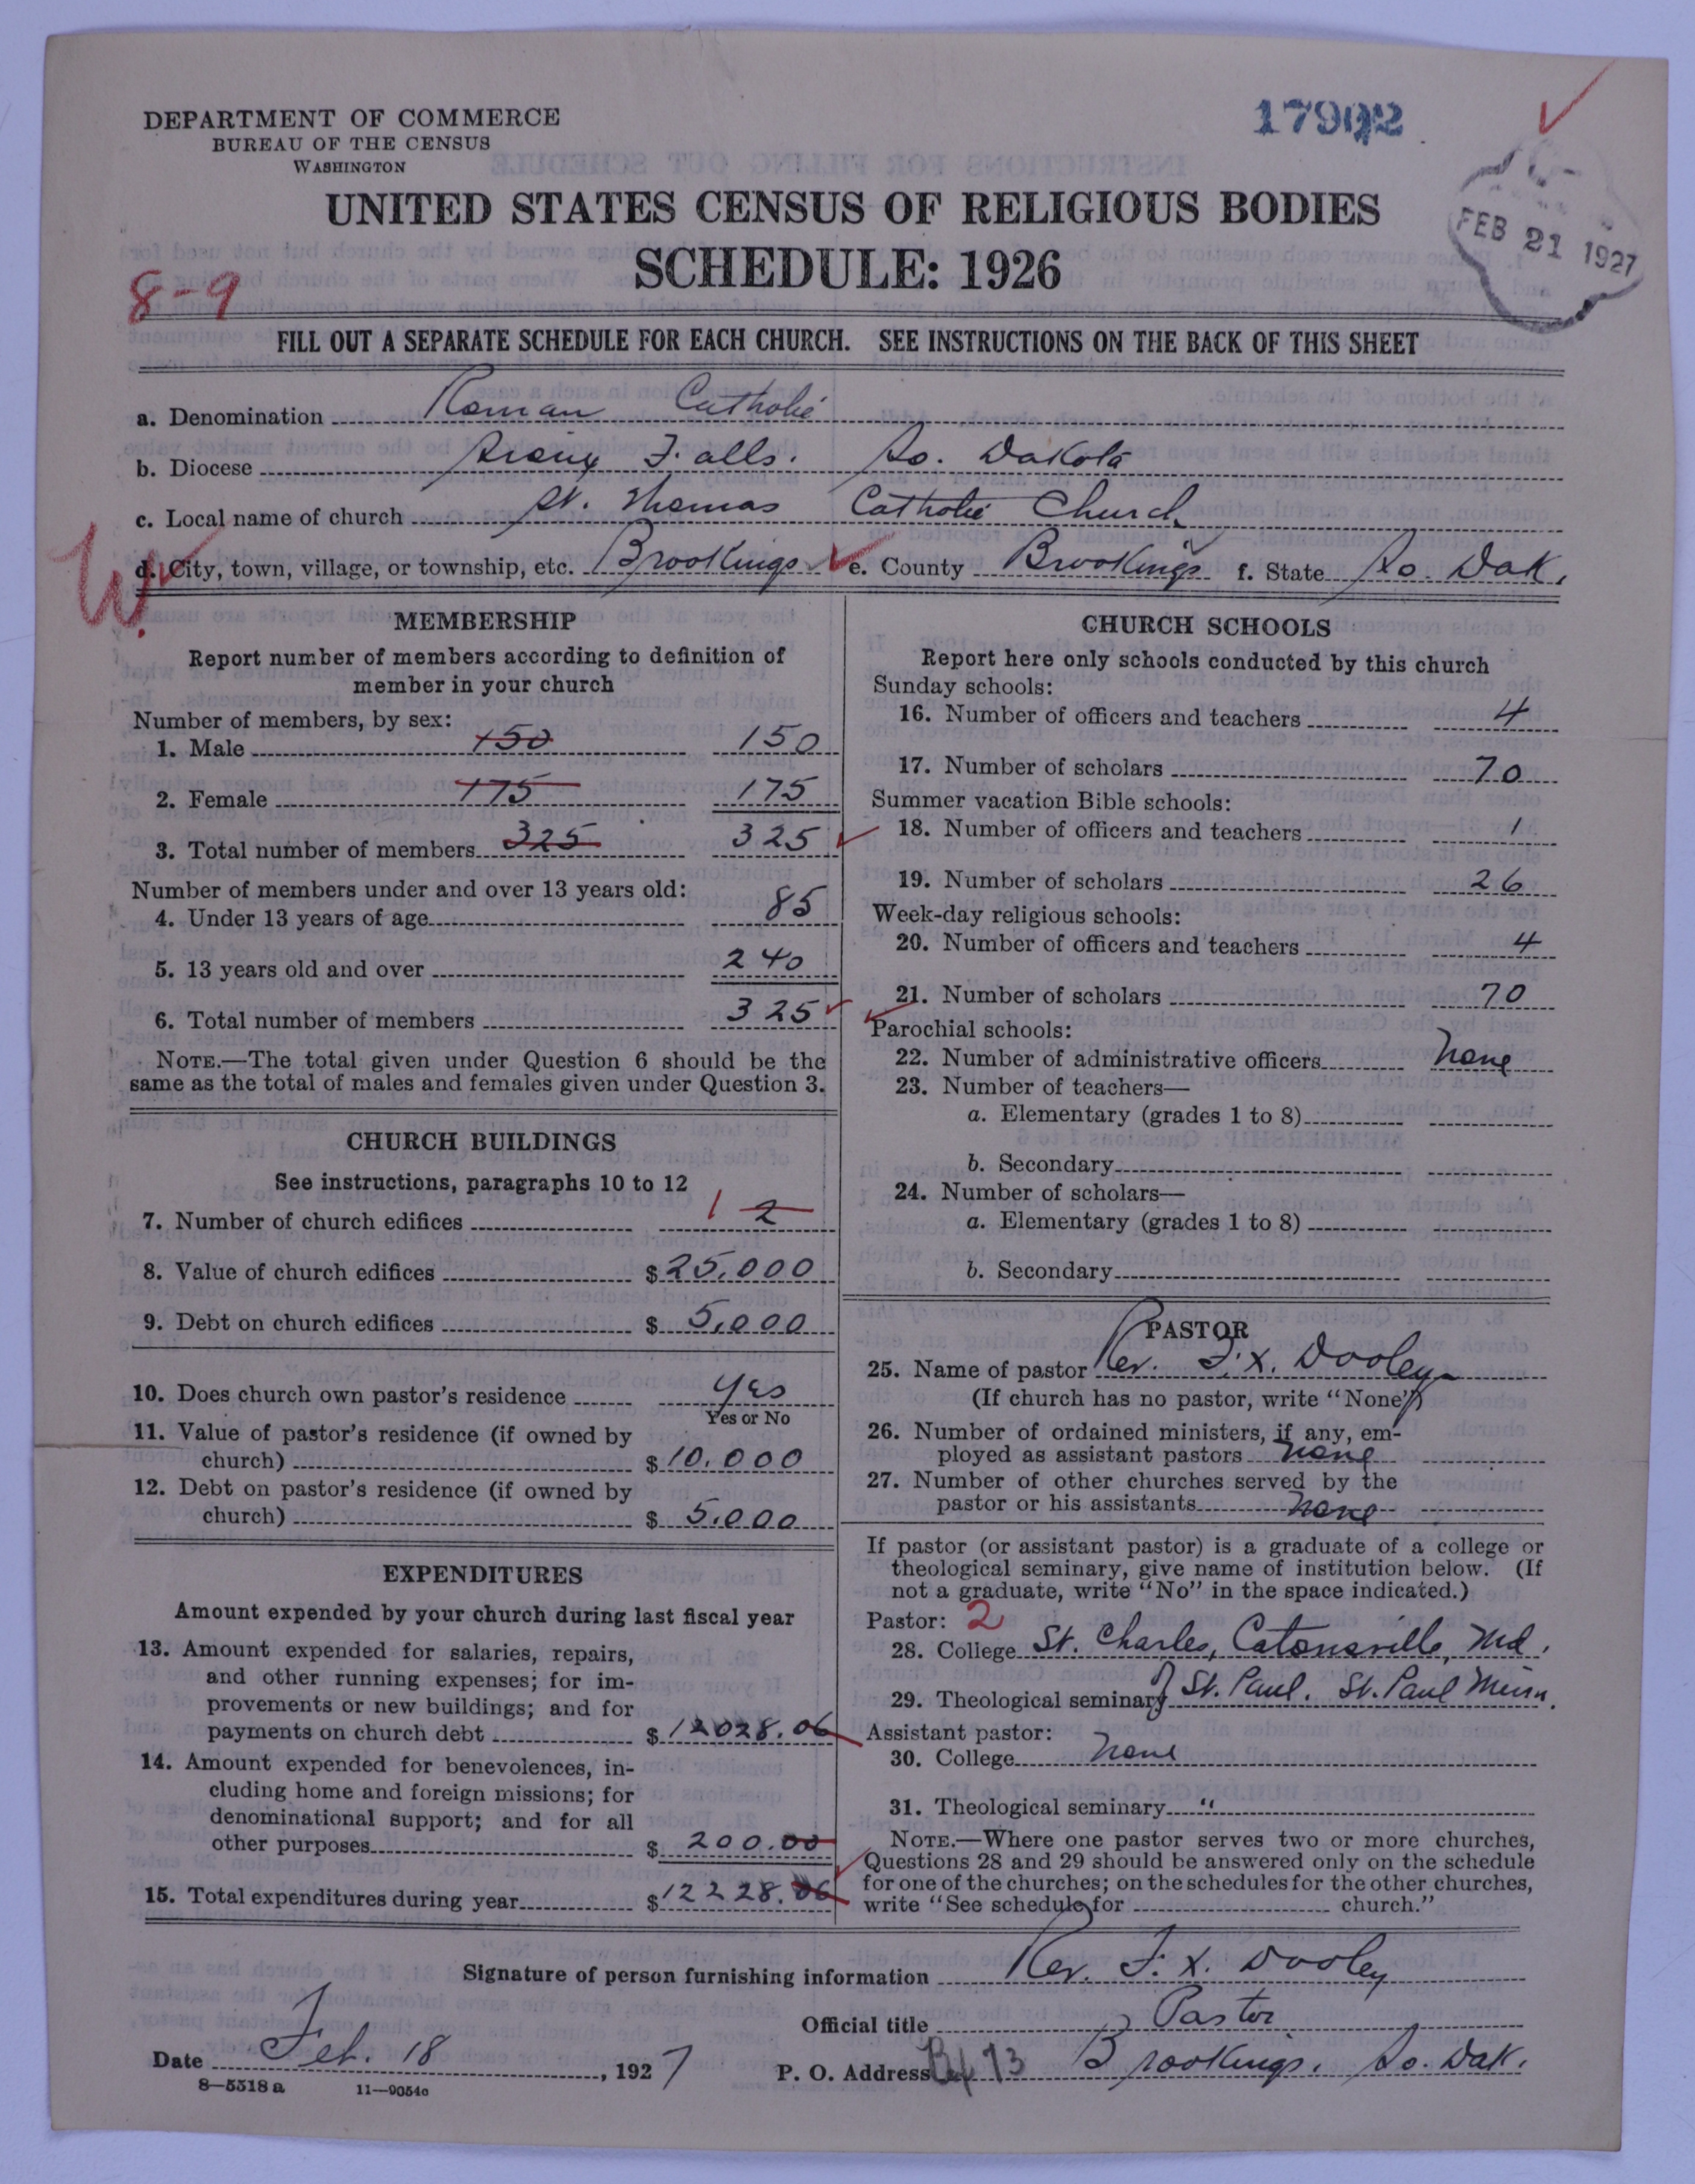 DEPARTMENT OF COMMERCE
BUREAU OF THE CENSUS
WASHINGTON
17902
FEB 21 1927
UNITED STATES CENSUS OF RELIGIOUS BODIES
SCHEDULE: 1926
8-9
FILL OUT A SEPARATE SCHEDULE FOR EACH CHURCH. SEE INSTRUCTIONS ON THE BACK OF THIS SHEET
a. Denomination Roman Catholic
b. Diocese Sioux Falls. So. Dakota
c. Local name of church St. Thomas Catholic Church
W.
d. City, town, village, or township, etc. Brookings e. County Brookings f. State So. Dak.
MEMBERSHIP
Report number of members according to definition of
member in your church
Number of members, by sex:
1. Male 150 150
2. Female 175 175
3. Total number of members 325 325
Number of members under and over 13 years old:
4. Under 13 years of age 85
5. 13 years old and over 240
6. Total number of members 325
NOTE.—The total given under Question 6 should be the
same as the total of males and females given under Question 3.
CHURCH BUILDINGS
See instructions, paragraphs 10 to 12
7. Number of church edifices 1 2
8. Value of church edifices $25,000
9. Debt on church edifices $5,000
10. Does church own pastor's residence yes
Yes or No
11. Value of pastor's residence (if owned by
church) $10,000
12. Debt on pastor's residence (if owned by
church) $5,000
EXPENDITURES
Amount expended by your church during last fiscal year
13. Amount expended for salaries, repairs,
and other running expenses; for im-
provements or new buildings; and for
payments on church debt $12028.06
14. Amount expended for benevolences, in-
cluding home and foreign missions; for
denominational support; and for all
other purposes $200.00
15. Total expenditures during year $12228.06
CHURCH SCHOOLS
Report here only schools conducted by this church
Sunday schools:
16. Number of officers and teachers 4
17. Number of scholars 70
Summer vacation Bible schools:
18. Number of officers and teachers 1
19. Number of scholars 26
Week-day religious schools:
20. Number of officers and teachers 4
21. Number of scholars 70
Parochial schools:
22. Number of administrative officers none
23. Number of teachers—
a. Elementary (grades 1 to 8)
b. Secondary
24. Number of scholars—
a. Elementary (grades 1 to 8)
b. Secondary
PASTOR
25. Name of pastor Rev. F. X. Dooley
(If church has no pastor, write "None")
26. Number of ordained ministers, if any, em-
ployed as assistant pastors none
27. Number of other churches served by the
pastor or his assistants none
If pastor (or assistant pastor) is a graduate of a college or
theological seminary, give name of institution below. (If
not a graduate, write "No" in the space indicated.)
Pastor: 2
28. College St. Charles, Catonsville, Md.
29. Theological seminary of St. Paul. St. Paul Minn.
Assistant pastor:
30. College none
31. Theological seminary "
NOTE.—Where one pastor serves two or more churches,
Questions 28 and 29 should be answered only on the schedule
for one of the churches; on the schedules for the other churches,
write "See schedule for church."
Signature of person furnishing information Rev. F. X. Dooley
Official title Pastor
Date Feb. 18, 1927 P. O. Address 73 Brookings, So. Dak.
8—5518 a 11—9054o